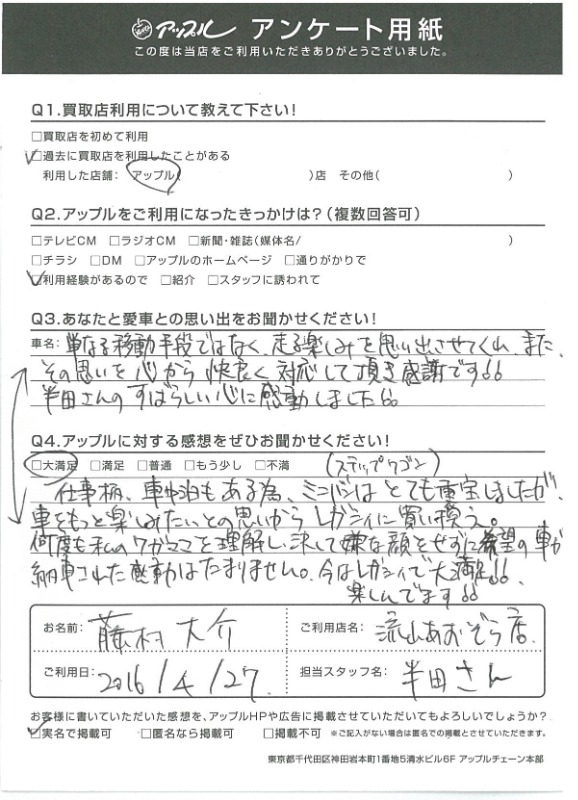 アップル アンケート用紙
この度は当店をご利用いただきありがとうございました。
Q1.買取店利用について教えて下さい!
□買取店を初めて利用
☑過去に買取店を利用したことがある
利用した店舗: アップル( )店 その他( )
Q2.アップルをご利用になったきっかけは?(複数回答可)
□テレビCM □ラジオCM □新聞・雑誌(媒体名/ )
□チラシ □DM □アップルのホームページ □通りがかりで
☑利用経験があるので □紹介 □スタッフに誘われて
Q3.あなたと愛車との思い出をお聞かせください!
車名: 単なる移動手段ではなく、走る楽しみを思い出させてくれ、また、
その思いを心から快良く対応して頂き感謝です!!
半田さんのすばらしい心に感動しました!!
Q4.アップルに対する感想をぜひお聞かせください!
□大満足 □満足 □普通 □もう少し □不満 (ステップワゴン)
仕事柄、車中泊もある為、ミニバンはとても重宝しましたが、
車をもっと楽しみたいとの思いからレガシィに買い換う。
何度も私のワガママを理解し、決して嫌な顔をせずに希望の車が
納車された感動はたまりません。今はレガシィで大満足!!
楽しんでます!!
お名前: 藤村 大介
ご利用店名: 流山あおぞら店.
ご利用日: 2016/4/27.
担当スタッフ名: 半田さん
お客様に書いていただいた感想を、アップルHPや広告に掲載させていただいてもよろしいでしょうか?
☑実名で掲載可 □匿名なら掲載可 □掲載不可 ※ご記入がない場合は匿名での掲載とさせていただきます。
東京都千代田区神田岩本町1番地5清水ビル6F アップルチェーン本部